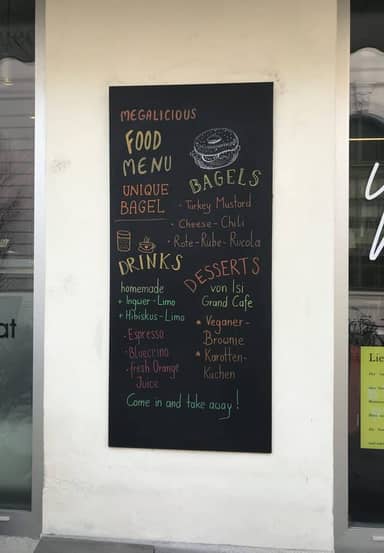 MEGALICIOUS
FOOD
MENU
UNIQUE
BAGEL
BAGELS
- Turkey Mustard
- Cheese-Chili
- Rote-Rübe-Rucola
DRINKS
homemade
+ Ingwer-Limo
+ Hibiskus-Limo
- Espresso
- Bluecrino
- fresh Orange
Juice
DESSERTS
von Isi
Grand Cafe
* Veganer-
Brownie
* Karotten-
Kuchen
Come in and take away!
at
Lie